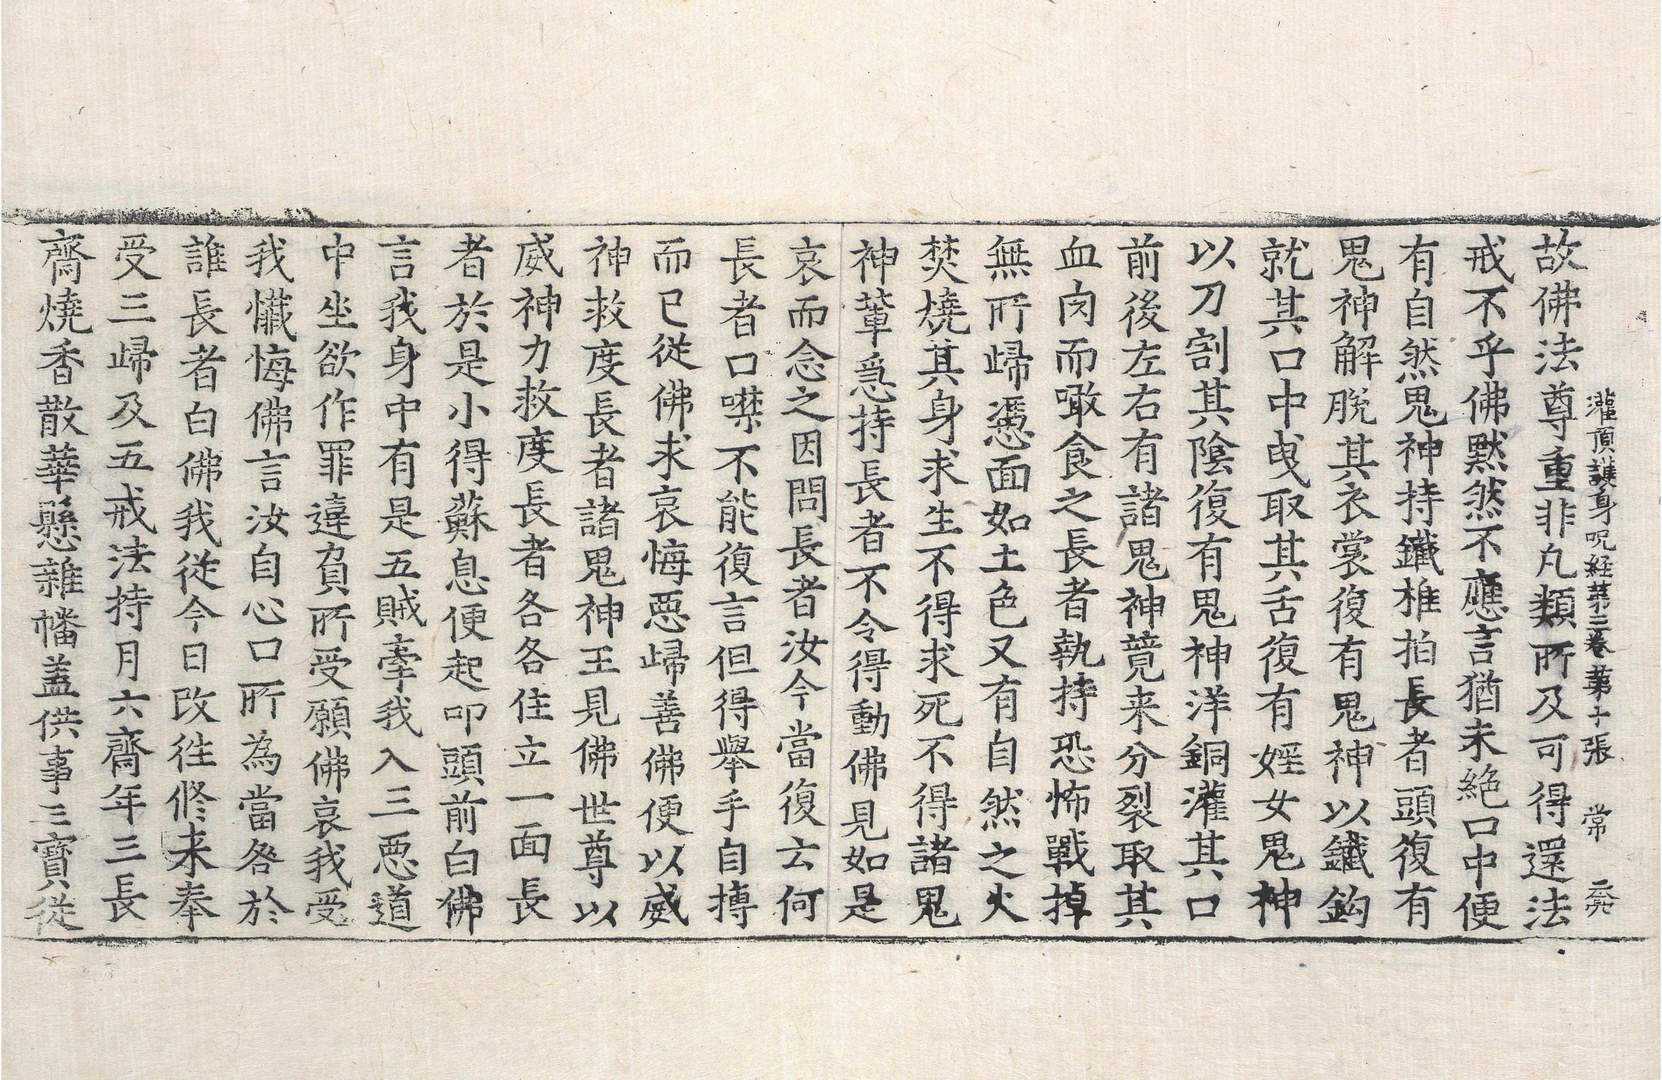 灌頂護身呪経第三巻 第十張 常
故佛法尊重非凡類所及可得還法
戒不乎佛默然不應言猶未絕口中便
有自然鬼神持鐵椎拍長者頭復有
鬼神解脫其衣裳復有鬼神以鐵鈎
就其口中曳取其舌復有婬女鬼神
以刀割其陰復有鬼神洋銅灌其口
前後左右有諸鬼神競来分裂取其
血肉而噉食之長者執持恐怖戰掉
無所歸憑面如土色又有自然之火
焚燒其身求生不得求死不得諸鬼
神輩急持長者不令得動佛見如是
哀而念之因問長者汝今當復云何
長者口噤不能復言但得舉手自搏
而已從佛求哀悔惡歸善佛便以威
神救度長者諸鬼神王見佛世尊以
威神力救度長者各各住立一面長
者於是小得蘇息便起叩頭前白佛
言我身中有是五賊牽我入三惡道
中坐欲作罪違負所受願佛哀我受
我懺悔佛言汝自心口所為當咎於
誰長者白佛我從今日改往修来奉
受三歸及五戒法持月六齋年三長
齋燒香散華懸雜幡蓋供事三寶從